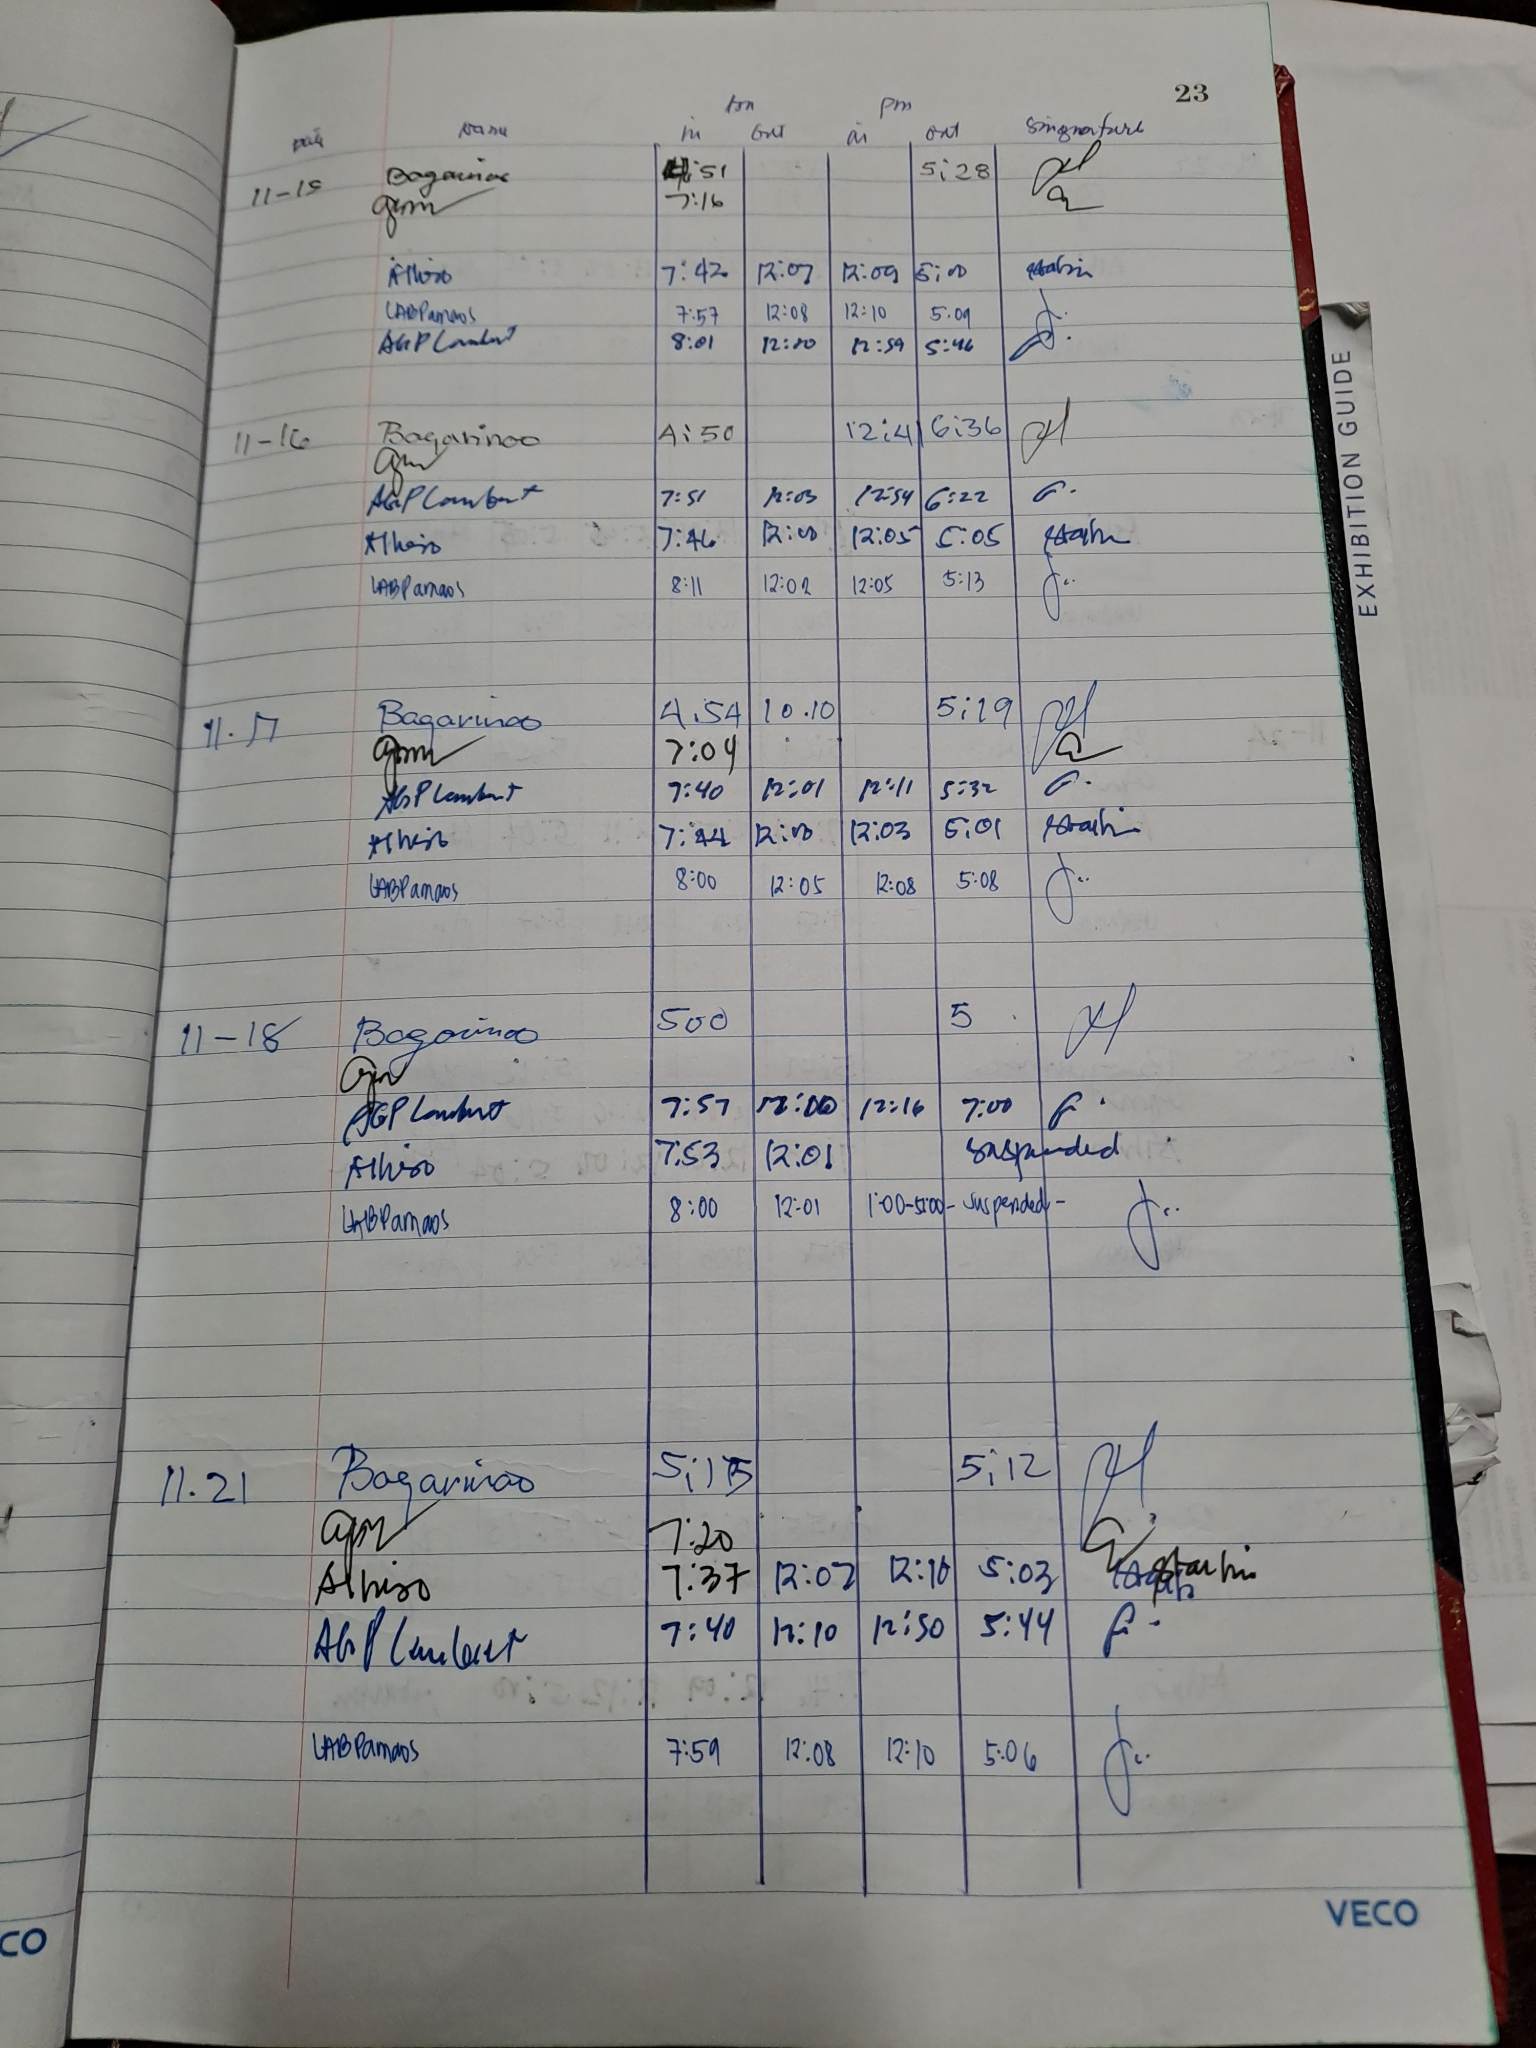 23
am pm
Date Name in out in out Singnature
11-15 Bagarinao 4:51 5:28
gm 7:16
Alhiso 7:42 12:07 12:09 5:00
LABPamaos 7:57 12:08 12:10 5:09
AGP Lambert 8:01 12:20 12:59 5:46
11-16 Bagarinao 4:50 12:41 6:36
AGP Lambert 7:51 12:03 12:54 6:22
Alhiso 7:46 12:00 12:05 5:05
LABPamaos 8:11 12:02 12:05 5:13
11.17 Bagarinao 4:54 10.10 5:19
7:04
AGP Lambert 7:40 12:01 12:11 5:32
Alhiso 7:44 12:00 12:03 5:01
LABPamaos 8:00 12:05 12:08 5:08
11-18 Bagarinao 500 5
AGP Lambert 7:57 12:00 12:16 7:00
Alhiso 7:53 12:01 suspended
LABPamaos 8:00 12:01 1:00-5:00- suspended-
11.21 Bagarinao 5:15 5:12
7:20
Alhiso 7:37 12:07 12:10 5:03
AGP Lambert 7:40 12:10 12:50 5:44
LABPamaos 7:59 12:08 12:10 5:06
VECO
CO
EXHIBITION GUIDE